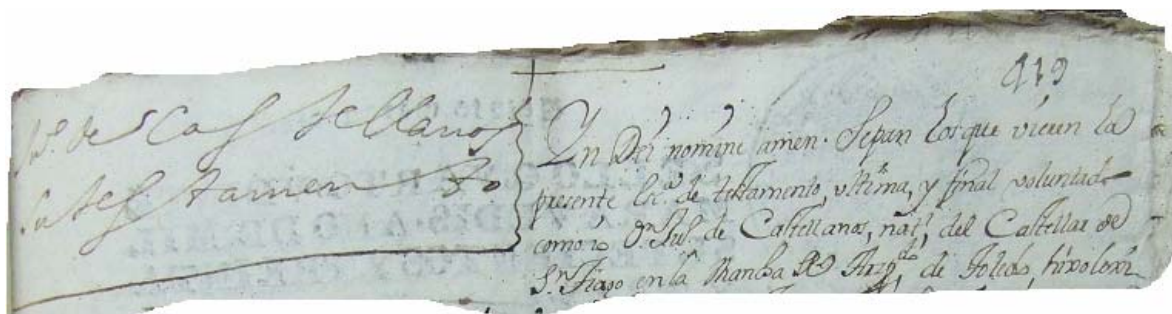 419
Ju.l de Castellanos
Su testamento
In Dei nomine amen. Sepan los que vieren la
presente ess.ra de testamento, ultima, y final voluntad
como io D.n Jul. de Castellanos, nat.l del Castellar de
S.n Tiago en la Mancha Arzp.do de Toledo, hixo lexi